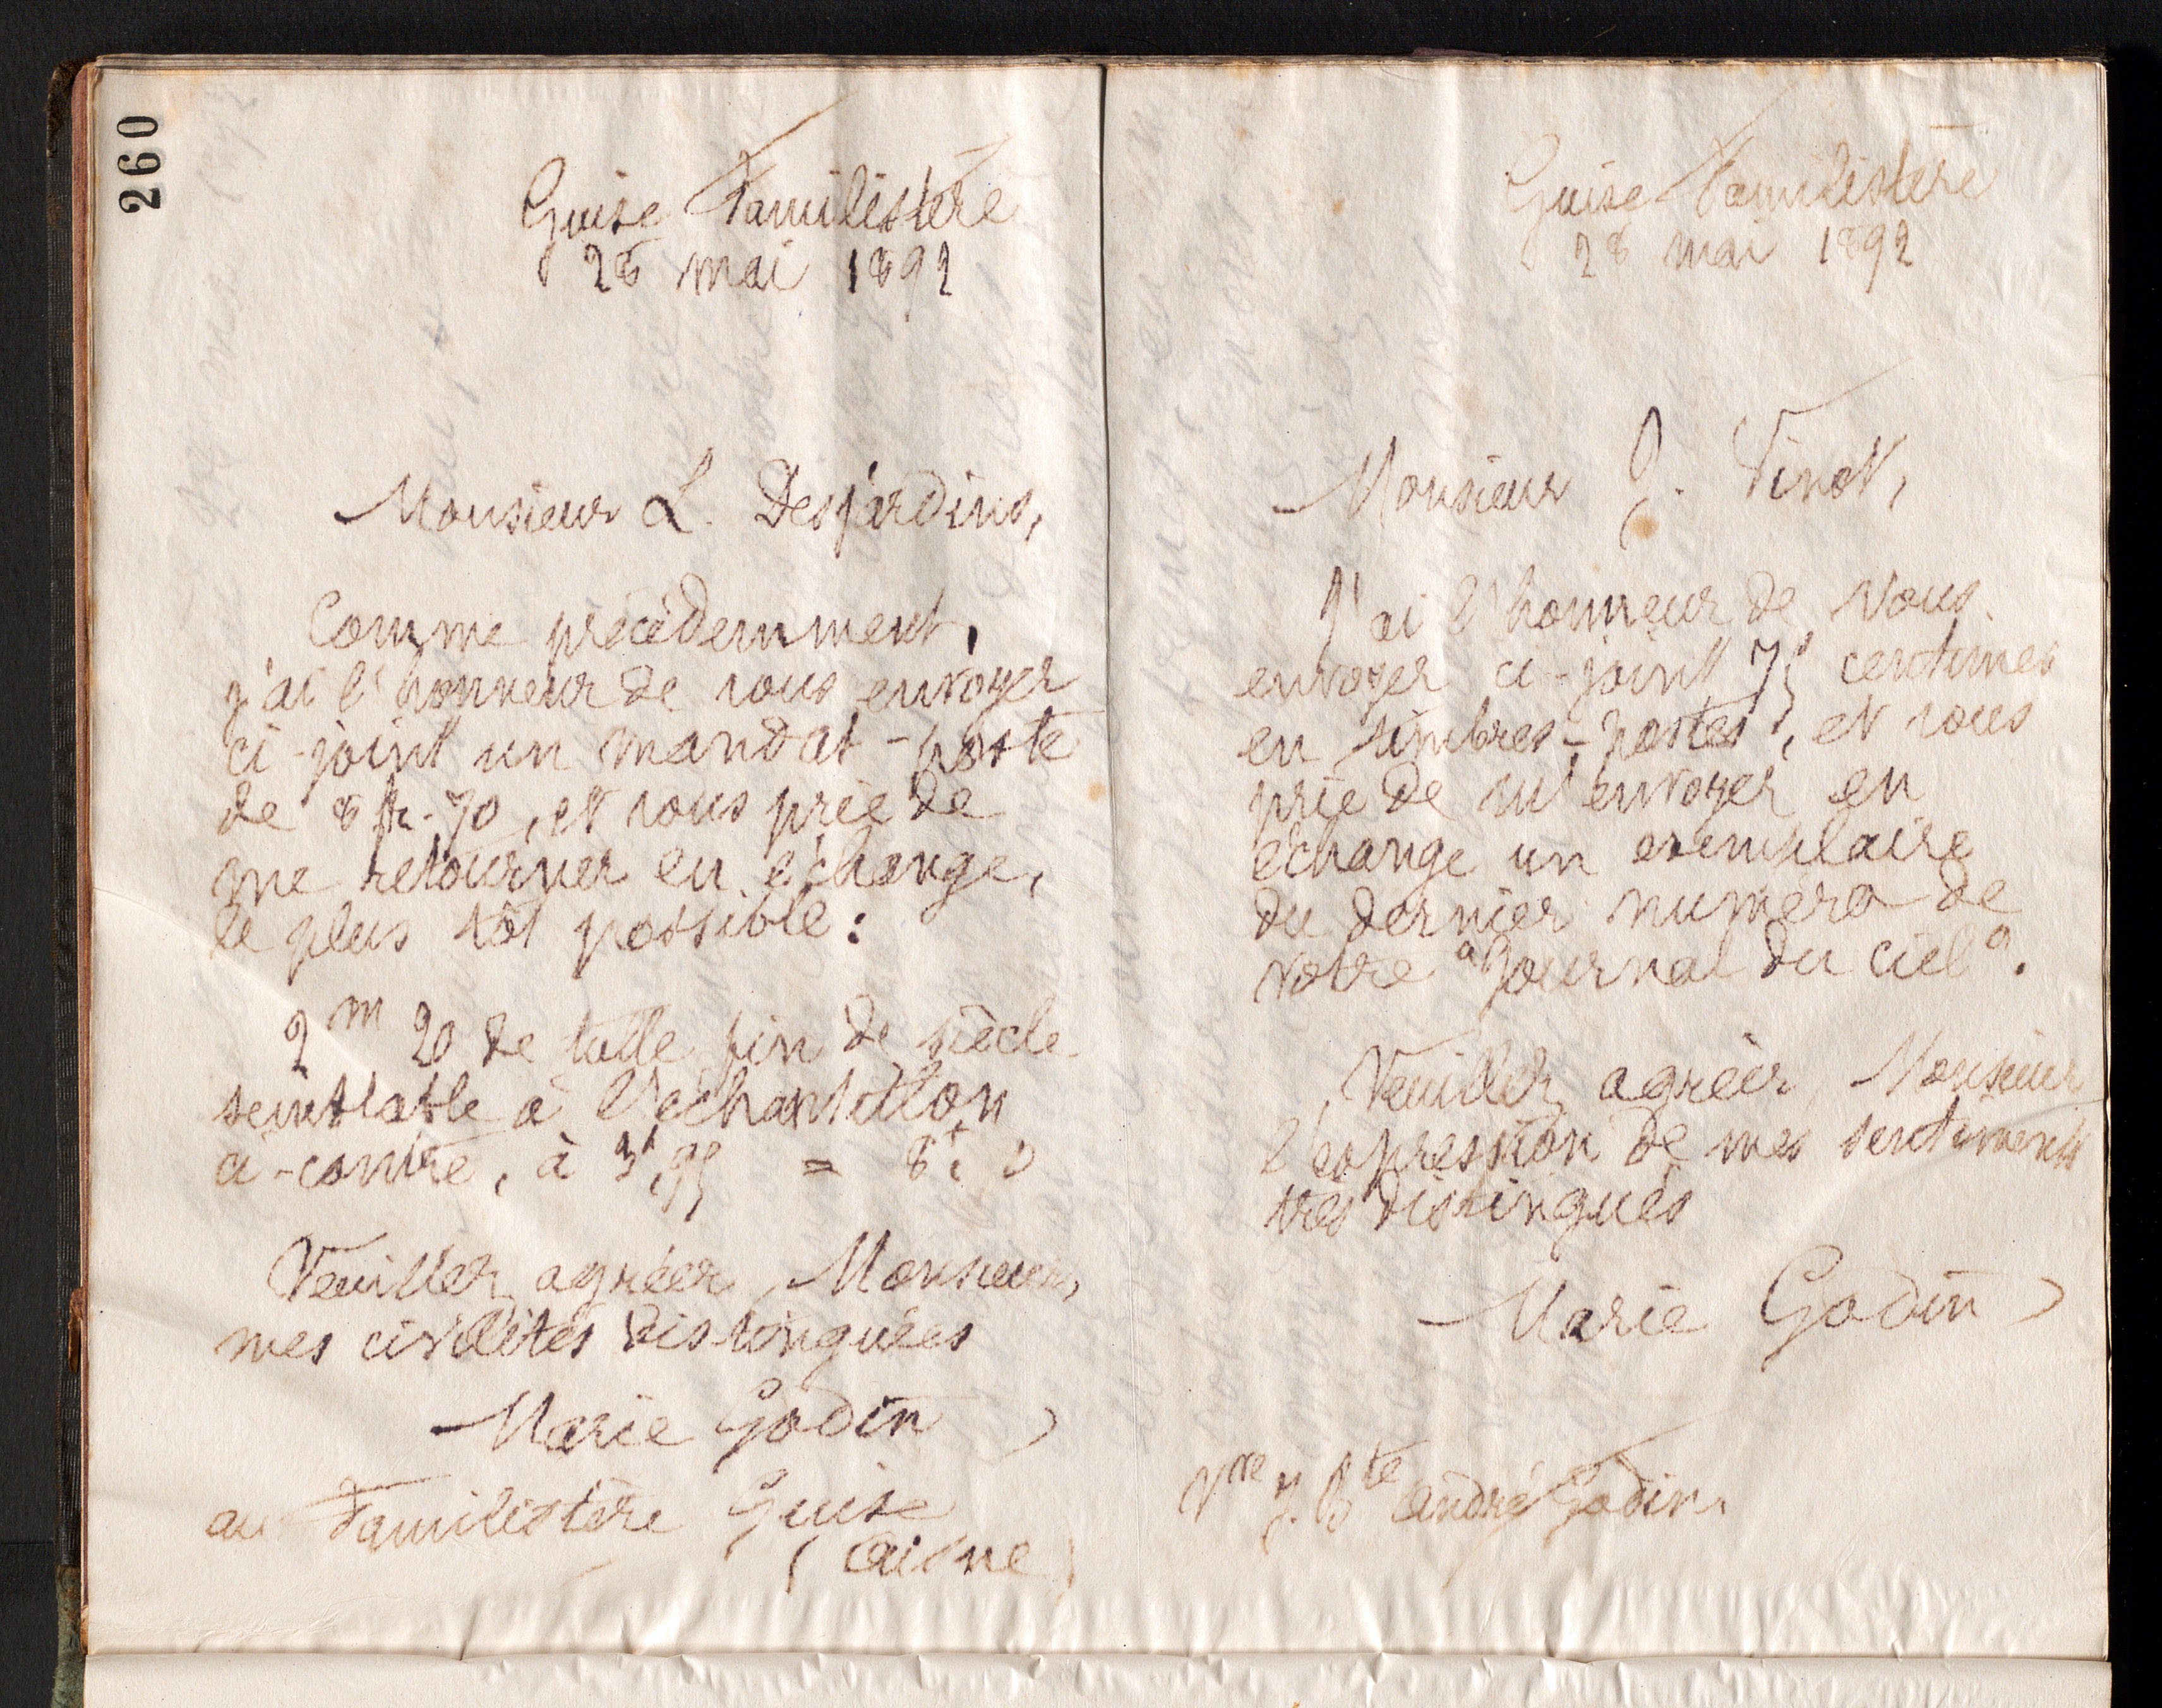 260
Guise Familistère
28 mai 1892
Monsieur L. Desjardins,
Comme précédemment,
j'ai l'honneur de vous envoyer
ci-joint un mandat-poste
de 8 fr. 70, et vous prie de
me retourner en échange,
le plus tôt possible :
2m 20 de tulle fin de siècle
semblable à l'échantillon
ci-contre, à 3f,95 = 8f,
Veuillez agréer, Monsieur,
mes civilités distinguées
Marie Godin
au Familistère Guise
(Aisne)
Guise Familistère
28 mai 1892
Monsieur J. Vinot,
J'ai l'honneur de vous
envoyer ci-joint 75 centimes
en timbres-postes, et vous
prie de m'envoyer en
échange un exemplaire
du dernier numéro de
votre "Journal du ciel".
Veuillez agréer, Monsieur
l'expression de mes sentiments
très distingués
Marie Godin
Vve J. Bte André Godin.